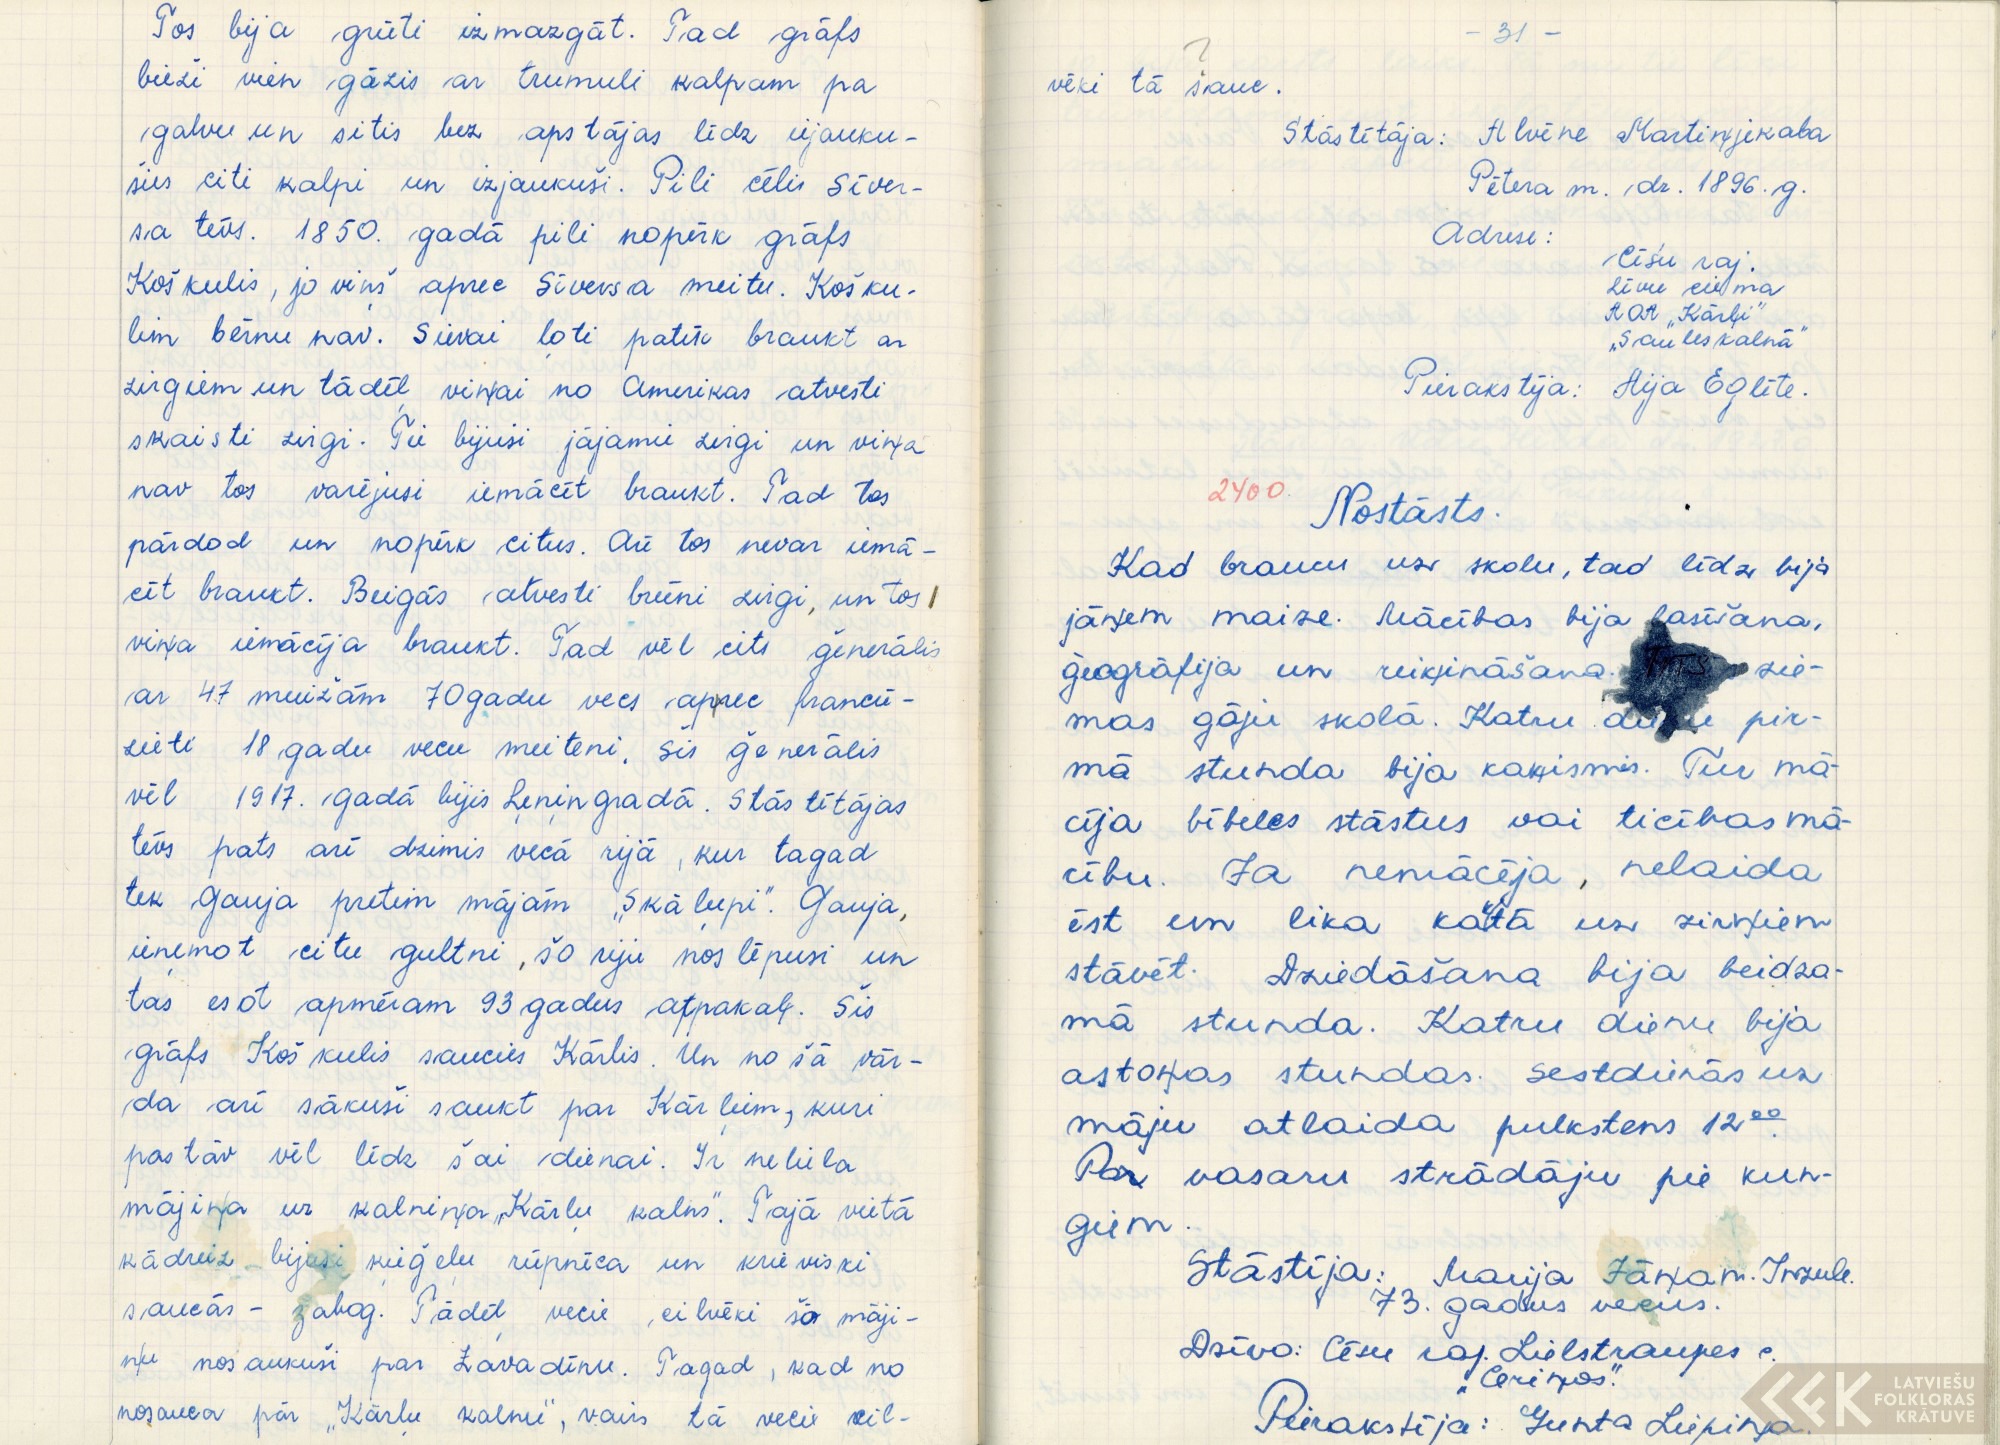 Tos bija grūti izmazgāt. Tad grāfs
bieži vien gāzis ar trumuli kalpam pa
galvu un sitis bez apstājas līdz iejauku-
šies citi kalpi un izjaukuši. Pili cēlis Sīver-
sa tēvs. 1850. gadā pili nopērk grāfs
Koškulis, jo viņš aprec Sīversa meitu. Košku-
lim bērnu nav. Sievai ļoti patīk braukt ar
zirgiem un tādēļ viņai no Amerikas atvesti
skaisti zirgi. Tie bijuši jājamie zirgi un viņa
nav tos varējusi iemācīt braukt. Tad tos
pārdod un nopērk citus. Arī tos nevar iemā-
cīt braukt. Beigās atvesti brūni zirgi, un tos
viņa iemācīja braukt. Tad vēl cits ģenerālis
ar 47 muižām 70 gadu vecs aprec francū-
zieti 18 gadu vecu meiteni. Šis ģenerālis
vēl 1917. gadā bijis Ļeņingradā. Stāstītājas
tēvs pats arī dzimis vecā rijā, kur tagad
tek Gauja pretim mājām „Skāļupi”. Gauja,
ieņemot citu gultni, šo riju noslēpusi un
tas esot apmēram 93 gadus atpakaļ. Šis
grāfs Koškulis saucies Kārlis. Un no šā vār-
da arī sākuši saukt par Kārļiem, kuri
pastāv vēl līdz šai dienai. Ir neliela
mājiņa uz kalniņa „Kārļu kalns”. Tajā vietā
kādreiz bijusi ķieģeļu rūpnīca un krieviski
saucās – zavog. Tādēļ vecie cilvēki šo māji-
ņu nosaukuši par Zavadiņu. Tagad, kad no
nosauca pār „Kārļu kalnu”, vairs tā vecie cil-
- 31 -
?
vēki tā sauc.
Stāstītāja: Alvīne Martiņjekaba
Pētera m. dz. 1896. g.
Adrese:
Cēsu raj.
Līvu ciema
AOA „Kārļi”
„Sauleskalnā”
Pierakstīja: Aija Eglīte.
2400.
Nostāsts.
Kad braucu uz skolu, tad līdz bija
jāņem maize. Mācības bija lasīšana,
ģeogrāfija un reiķināšana. zie-
mas gāju skolā. Katru dienu pir-
mā stunda bija kaķismis. Tur mā-
cīja bībeles stāstus vai ticības mā-
cību. Ja nemācēja, nelaida
ēst un lika kaktā uz zirņiem
stāvēt. Dziedāšana bija beidza-
mā stunda. Katru dienu bija
astoņas stundas. Sestdienās uz
māju atlaida pulkstens 12⁰⁰.
Par vasaru strādāju pie kun-
giem.
Stāstīja: Marija Jāņa m. Inzule.
73. gadus vecus.
Dzīvo: Cēsu raj. Lielstraupes c.
„Ceriņos”.
Pierakstīja: Gunta Liepiņa.
LATVIEŠU
FOLKLORAS
KRĀTUVE